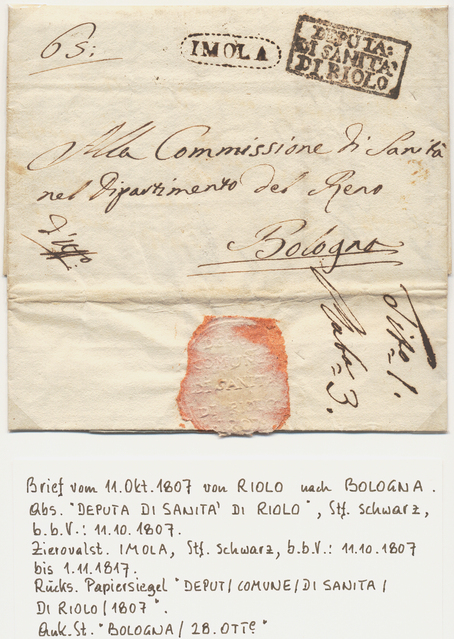 6s:
IMOLA
DEPUTA:
DI SANITA:
DI RIOLO
Alla Commissione di Sanità
nel Dipartimento del Reno
Bologna
Tipo = 1.
= 3.
Brief vom 11. Okt. 1807 von RIOLO nach BOLOGNA.
Abs. "DEPUTA DI SANITA' DI RIOLO", Stf. schwarz,
b.b.V.: 11.10.1807.
Zierovalst. IMOLA, Stf. Schwarz, b.b.V.: 11.10.1807
bis 1.11.1817.
Rücks. Papiersiegel "DEPUT/COMUNE/DI SANITA/
DI RIOLO/1807".
Ank.St. "BOLOGNA/28. OTTe"